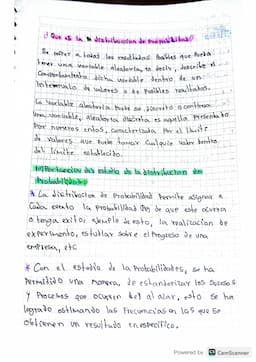 ¿Que es la distribucion de probabilidades?
Se refier a todos los resultados Posibles que Pueda
tener una variable Aleatoria, es decir, describe el
Comportamiento dicha variable dentro de un
Intervalo de valores o de Posibles resultados.
La Variable aleatoria Puede ser discreta o continua
Una variable, Aleatoria discreta es aquella Presentada
Por números entos, Caracterizada Por el limite
de valores que Puede tomar Cualquier valor dentro
del limite establecido.
Importancia del estudio de la distribucion de
Probabilidad.
* La distribucion de Probabilidad Permite asignar a
Cada evento la Probabilidad de que este ocurra
o tenga exito; ejemplo de esto, la realizacion de
experimento, estudiar sobre el Progreso de una
empresa, etc
* Con el estudio de la Probabilidades, se ha
Permitido una manera, de estandarizar los sucesos
y Procesos que ocurren del al azar, esto se ha
logrado estimando las Frecuencias en las que se
Obtienen un resultado en especifico.
Powered by CS CamScanner